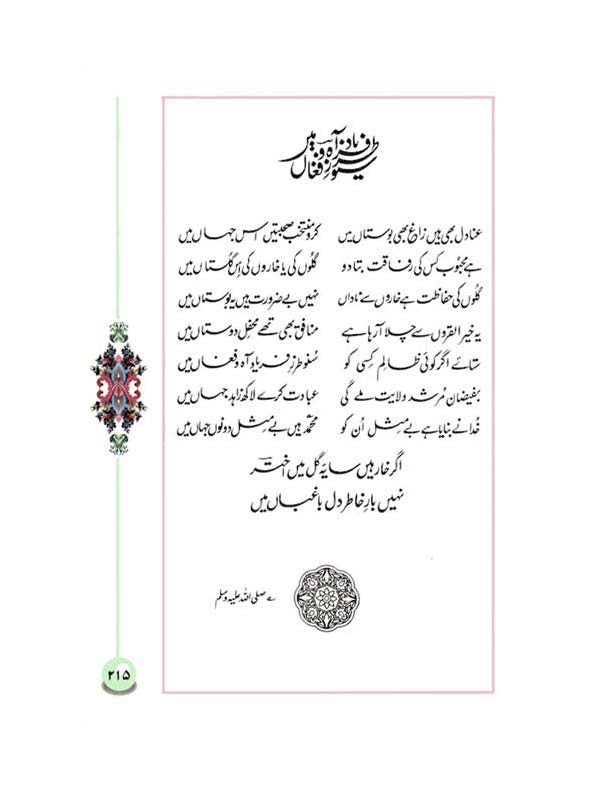 سنو طرزِ فریاد و آہ و فغاں میں
عنادل بھی ہیں زاغ بھی بوستاں میں کرو منتخب صحبتیں اس جہاں میں
ہے محبوب کس کی رفاقت بتا دو گلوں کی یا خاروں کی اس گلستاں میں
گلوں کی حفاظت ہے خاروں سے ناداں نہیں بے ضرورت ہیں یہ بوستاں میں
یہ خیر القروں سے چلا آرہا ہے منافق بھی تھے محفلِ دوستاں میں
ستائے اگر کوئی ظالم کسی کو سنو طرزِ فریاد و آہ و فغاں میں
بفیضانِ مُرشد ولایت ملے گی عبادت کرے لاکھ زاہد جہاں میں
خُدا نے بنایا ہے بے مِثل اُن کو محمدؐ ہیں بے مِثل دونوں جہاں میں
اگر خار ہیں سایۂ گل میں اختر
نہیں بارِ خاطر دل باغباں میں
صلی اللہ علیہ وسلم
۲۱۵